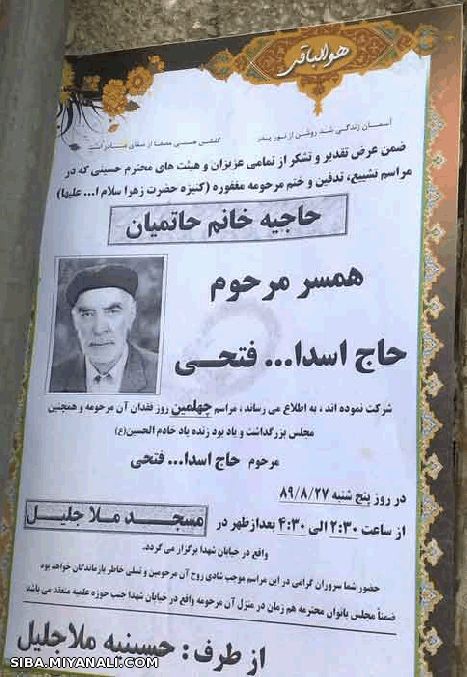 هوالباقی
آسمان زندگی شد روشن از نور پدر
گلشن هستی مصفا از صفای مادر است
ضمن عرض تقدیر و تشکر از تمامی عزیزان و هیئت های محترم حسینی که در
مراسم تشییع، تدفین و ختم مرحومه مغفوره (کنیزه حضرت زهرا سلام ا... علیها)
حاجیه خانم حاتمیان
همسر مرحوم
حاج اسدا... فتحی
شرکت نموده اند ، به اطلاع می رساند ، مراسم چهلمین روز فقدان آن مرحومه و همچنین
مجلس بزرگداشت و یاد بود زنده یاد خادم الحسین(ع)
مرحوم حاج اسدا... فتحی
در روز پنج شنبه ۸۹/۸/۲۷
از ساعت ۲:۳۰ الی ۴:۳۰ بعدازظهر در مسجد ملا جلیل
واقع در خیابان شهدا برگزار می گردد.
حضور شما سروران گرامی در این مراسم موجب شادی روح آن مرحومین و تسلی خاطر بازماندگان خواهد بود
ضمناً مجلس بانوان محترمه هم زمان در منزل آن مرحومه واقع در خیابان شهدا جنب حوزه علمیه منعقد می باشد
از طرف : حسینیه ملاجلیل
SIBA.MIYANALI.COM